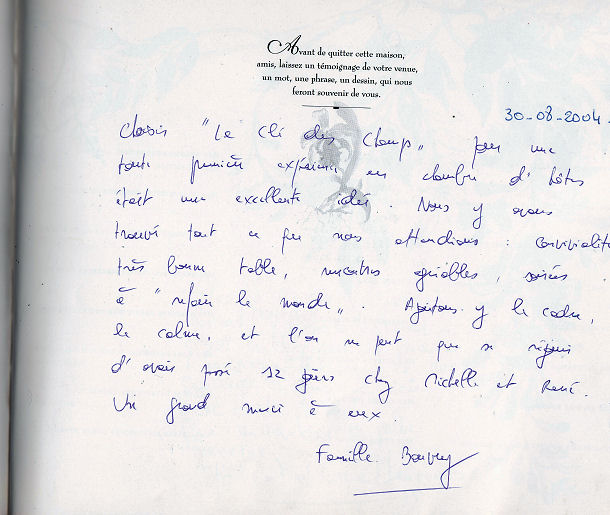 Avant de quitter cette maison,
amis, laissez un témoignage de votre venue,
un mot, une phrase, un dessin, qui nous
feront souvenir de vous.
30-08-2004.
Choisir "La Clé des Champs" pour une
toute première expérience en chambre d'hôtes
était une excellente idée. Nous y avons
trouvé tout ce que nous attendions : convivialité
très bonne table, rencontres agréables, soirées
à "refaire le monde". Ajoutons-y le cadre,
le calme, et l'on ne peut que se réjouir
d'avoir passé 12 jours chez Michelle et René.
Un grand merci à eux.
Famille